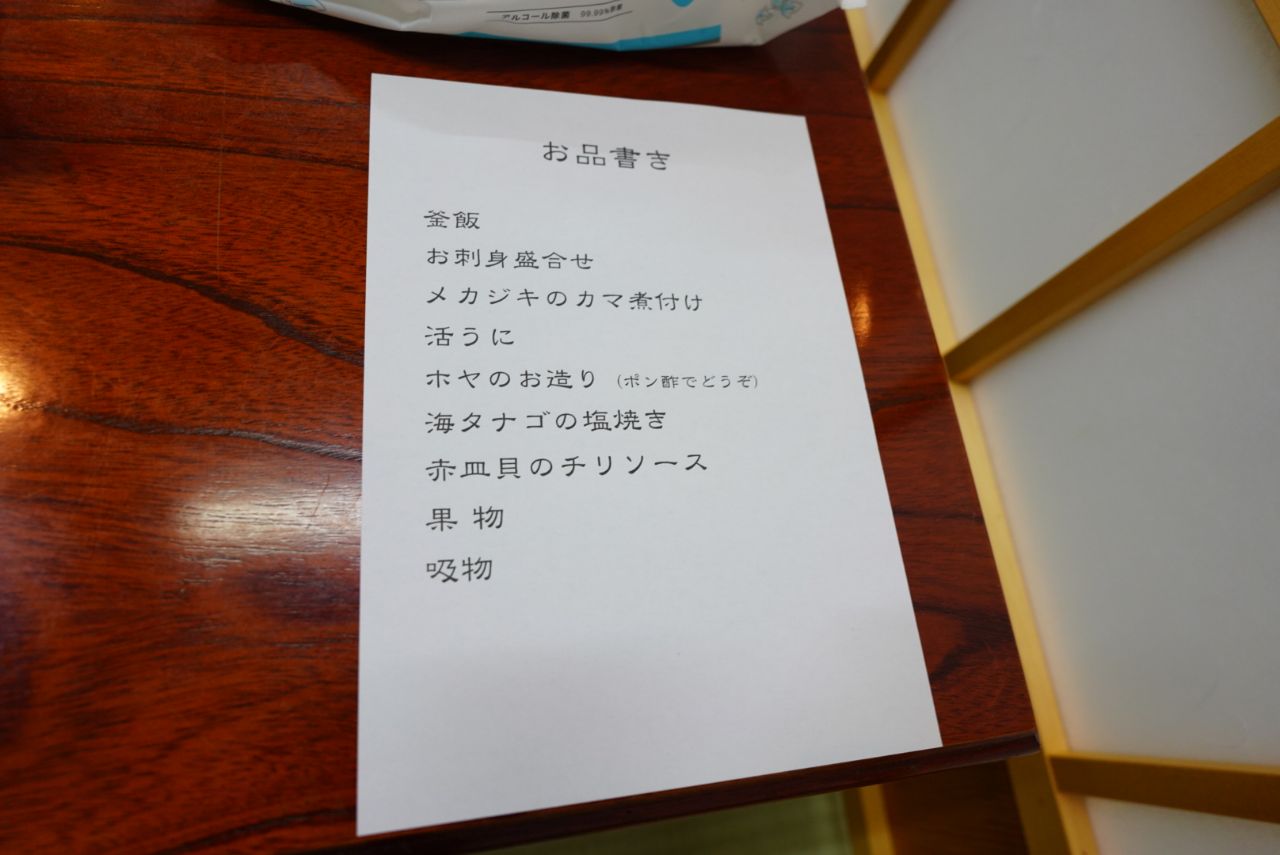 アルコール除菌 99.99%除菌
お品書き
釜飯
お刺身盛合せ
メカジキのカマ煮付け
活うに
ホヤのお造り (ポン酢でどうぞ)
海タナゴの塩焼き
赤皿貝のチリソース
果 物
吸物